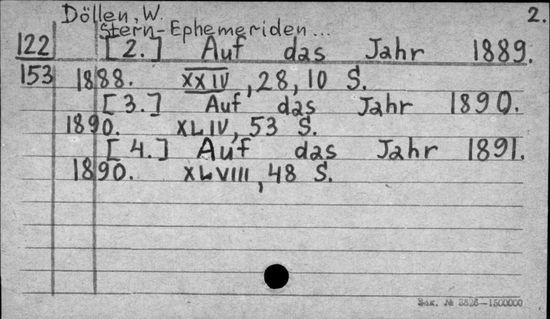 Döllen, W. 2.
Stern-Ephemeriden...
122 [2.] Auf das Jahr 1889.
153 1888. XXIV, 28, 10 S.
[3.] Auf das Jahr 1890.
1890. XLIV, 53 S.
[4.] Auf das Jahr 1891.
1890. XLVIII, 48 S.
Зак. № 8826—1500000